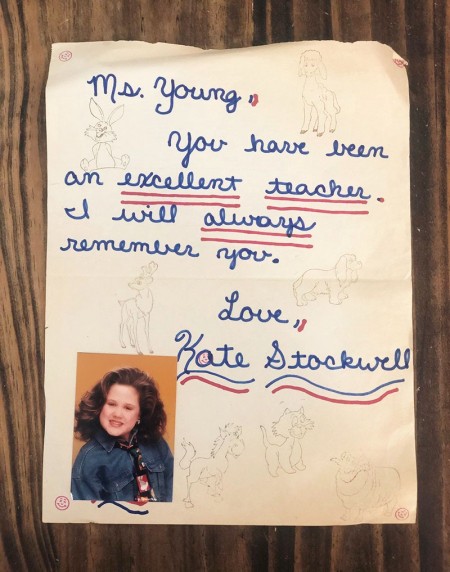 Ms. Young,
You have been
an excellent teacher.
I will always
remember you.
Love,
Kate Stockwell